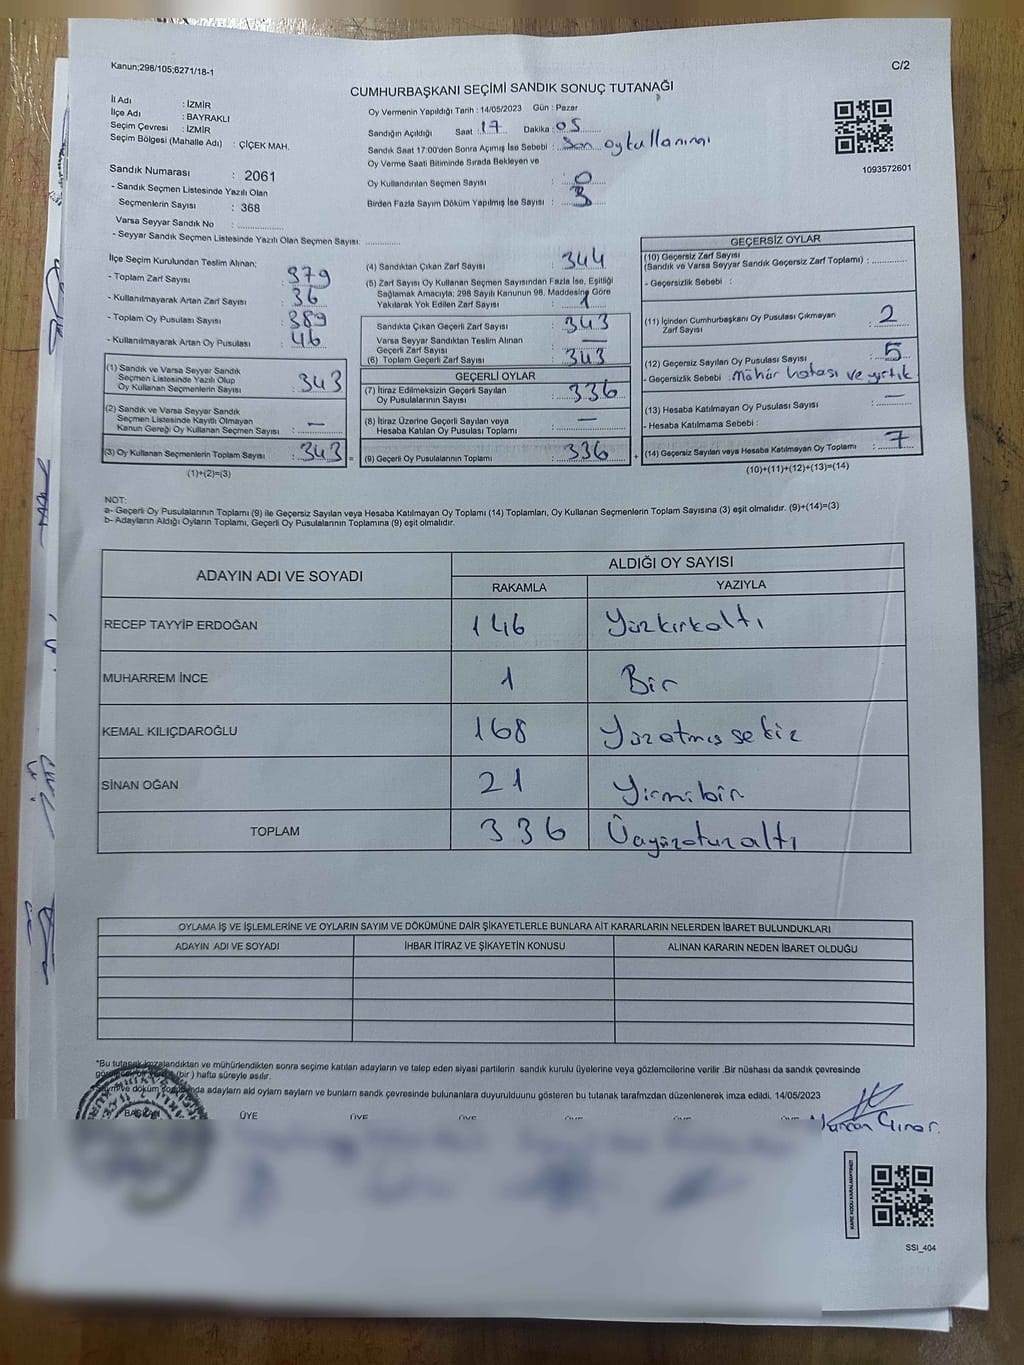 Kanun;298/105;6271/18-1
C/2
CUMHURBAŞKANI SEÇİMİ SANDIK SONUÇ TUTANAĞI
İl Adı : İZMİR
İlçe Adı : BAYRAKLI
Seçim Çevresi : İZMİR
Seçim Bölgesi (Mahalle Adı) : ÇİÇEK MAH.
Sandık Numarası : 2061
- Sandık Seçmen Listesinde Yazılı Olan
Seçmenlerin Sayısı : 368
Varsa Seyyar Sandık No :
- Seyyar Sandık Seçmen Listesinde Yazılı Olan Seçmen Sayısı:
Oy Vermenin Yapıldığı Tarih : 14/05/2023 Gün : Pazar
Sandığın Açıldığı Saat : 17 Dakika : 05
Sandık Saat 17:00'den Sonra Açımış İse Sebebi : Son oy kullanımı
Oy Verme Saati Bitiminde Sırada Bekleyen ve
Oy Kullandırılan Seçmen Sayısı : 0
Birden Fazla Sayım Döküm Yapılmış İse Sayısı : 3
1093572601
İlçe Seçim Kurulundan Teslim Alınan;
- Toplam Zarf Sayısı : 379
- Kullanılmayarak Artan Zarf Sayısı : 36
- Toplam Oy Pusulası Sayısı : 389
- Kullanılmayarak Artan Oy Pusulası : 46
(1) Sandık ve Varsa Seyyar Sandık
Seçmen Listesinde Yazılı Olup
Oy Kullanan Seçmenlerin Sayısı : 343
(2) Sandık ve Varsa Seyyar Sandık
Seçmen Listesinde Kayıtlı Olmayan
Kanun Gereği Oy Kullanan Seçmen Sayısı : —
(3) Oy Kullanan Seçmenlerin Toplam Sayısı : 343 =
(1)+(2)=(3)
(4) Sandıktan Çıkan Zarf Sayısı : 344
(5) Zarf Sayısı Oy Kullanan Seçmen Sayısından Fazla İse, Eşitliği
Sağlamak Amacıyla; 298 Sayılı Kanunun 98. Maddesine Göre
Yakılarak Yok Edilen Zarf Sayısı : 1
Sandıkta Çıkan Geçerli Zarf Sayısı : 343
Varsa Seyyar Sandıktan Teslim Alınan
Geçerli Zarf Sayısı : —
(6) Toplam Geçerli Zarf Sayısı : 343
GEÇERLİ OYLAR
(7) İtiraz Edilmeksizin Geçerli Sayılan
Oy Pusulalarının Sayısı : 336
(8) İtiraz Üzerine Geçerli Sayılan veya
Hesaba Katılan Oy Pusulası Toplamı : —
(9) Geçerli Oy Pusulalarının Toplamı : 336 +
GEÇERSİZ OYLAR
(10) Geçersiz Zarf Sayısı
(Sandık ve Varsa Seyyar Sandık Geçersiz Zarf Toplamı) :
- Geçersizlik Sebebi :
(11) İçinden Cumhurbaşkanı Oy Pusulası Çıkmayan
Zarf Sayısı : 2
(12) Geçersiz Sayılan Oy Pusulası Sayısı : 5
- Geçersizlik Sebebi : Mühür hatası ve yırtık
(13) Hesaba Katılmayan Oy Pusulası Sayısı : —
- Hesaba Katılmama Sebebi :
(14) Geçersiz Sayılan veya Hesaba Katılmayan Oy Toplamı : 7
(10)+(11)+(12)+(13)=(14)
NOT:
a- Geçerli Oy Pusulalarının Toplamı (9) ile Geçersiz Sayılan veya Hesaba Katılmayan Oy Toplamı (14) Toplamları, Oy Kullanan Seçmenlerin Toplam Sayısına (3) eşit olmalıdır. (9)+(14)=(3)
b- Adayların Aldığı Oyların Toplamı, Geçerli Oy Pusulalarının Toplamına (9) eşit olmalıdır.
ADAYIN ADI VE SOYADI ALDIĞI OY SAYISI
RAKAMLA YAZIYLA
RECEP TAYYİP ERDOĞAN 146 Yüzkırkaltı
MUHARREM İNCE 1 Bir
KEMAL KILIÇDAROĞLU 168 Yüzatmış sekiz
SİNAN OĞAN 21 Yirmibir
TOPLAM 336 Üçyüzotuzaltı
OYLAMA İŞ VE İŞLEMLERİNE VE OYLARIN SAYIM VE DÖKÜMÜNE DAİR ŞİKAYETLERLE BUNLARA AİT KARARLARIN NELERDEN İBARET BULUNDUKLARI
ADAYIN ADI VE SOYADI İHBAR İTİRAZ VE ŞİKAYETİN KONUSU ALINAN KARARIN NEDEN İBARET OLDUĞU
*Bu tutanak imzalandıktan ve mühürlendikten sonra seçime katılan adayların ve talep eden siyasi partilerin sandık kurulu üyelerine veya gözlemcilerine verilir .Bir nüshası da sandık çevresinde
(bir ) hafta süreyle asılır.
ve döküm adayların ald oyların sayların ve bunların sandk çevresinde bulunanlara duyurulduunu gösteren bu tutanak tarafmzdan düzenlenerek imza edildi. 14/05/2023
BAŞKAN ÜYE ÜYE ÜYE ÜYE ÜYE
KARE KODU KARALAMAYINIZ!
SSİ_404